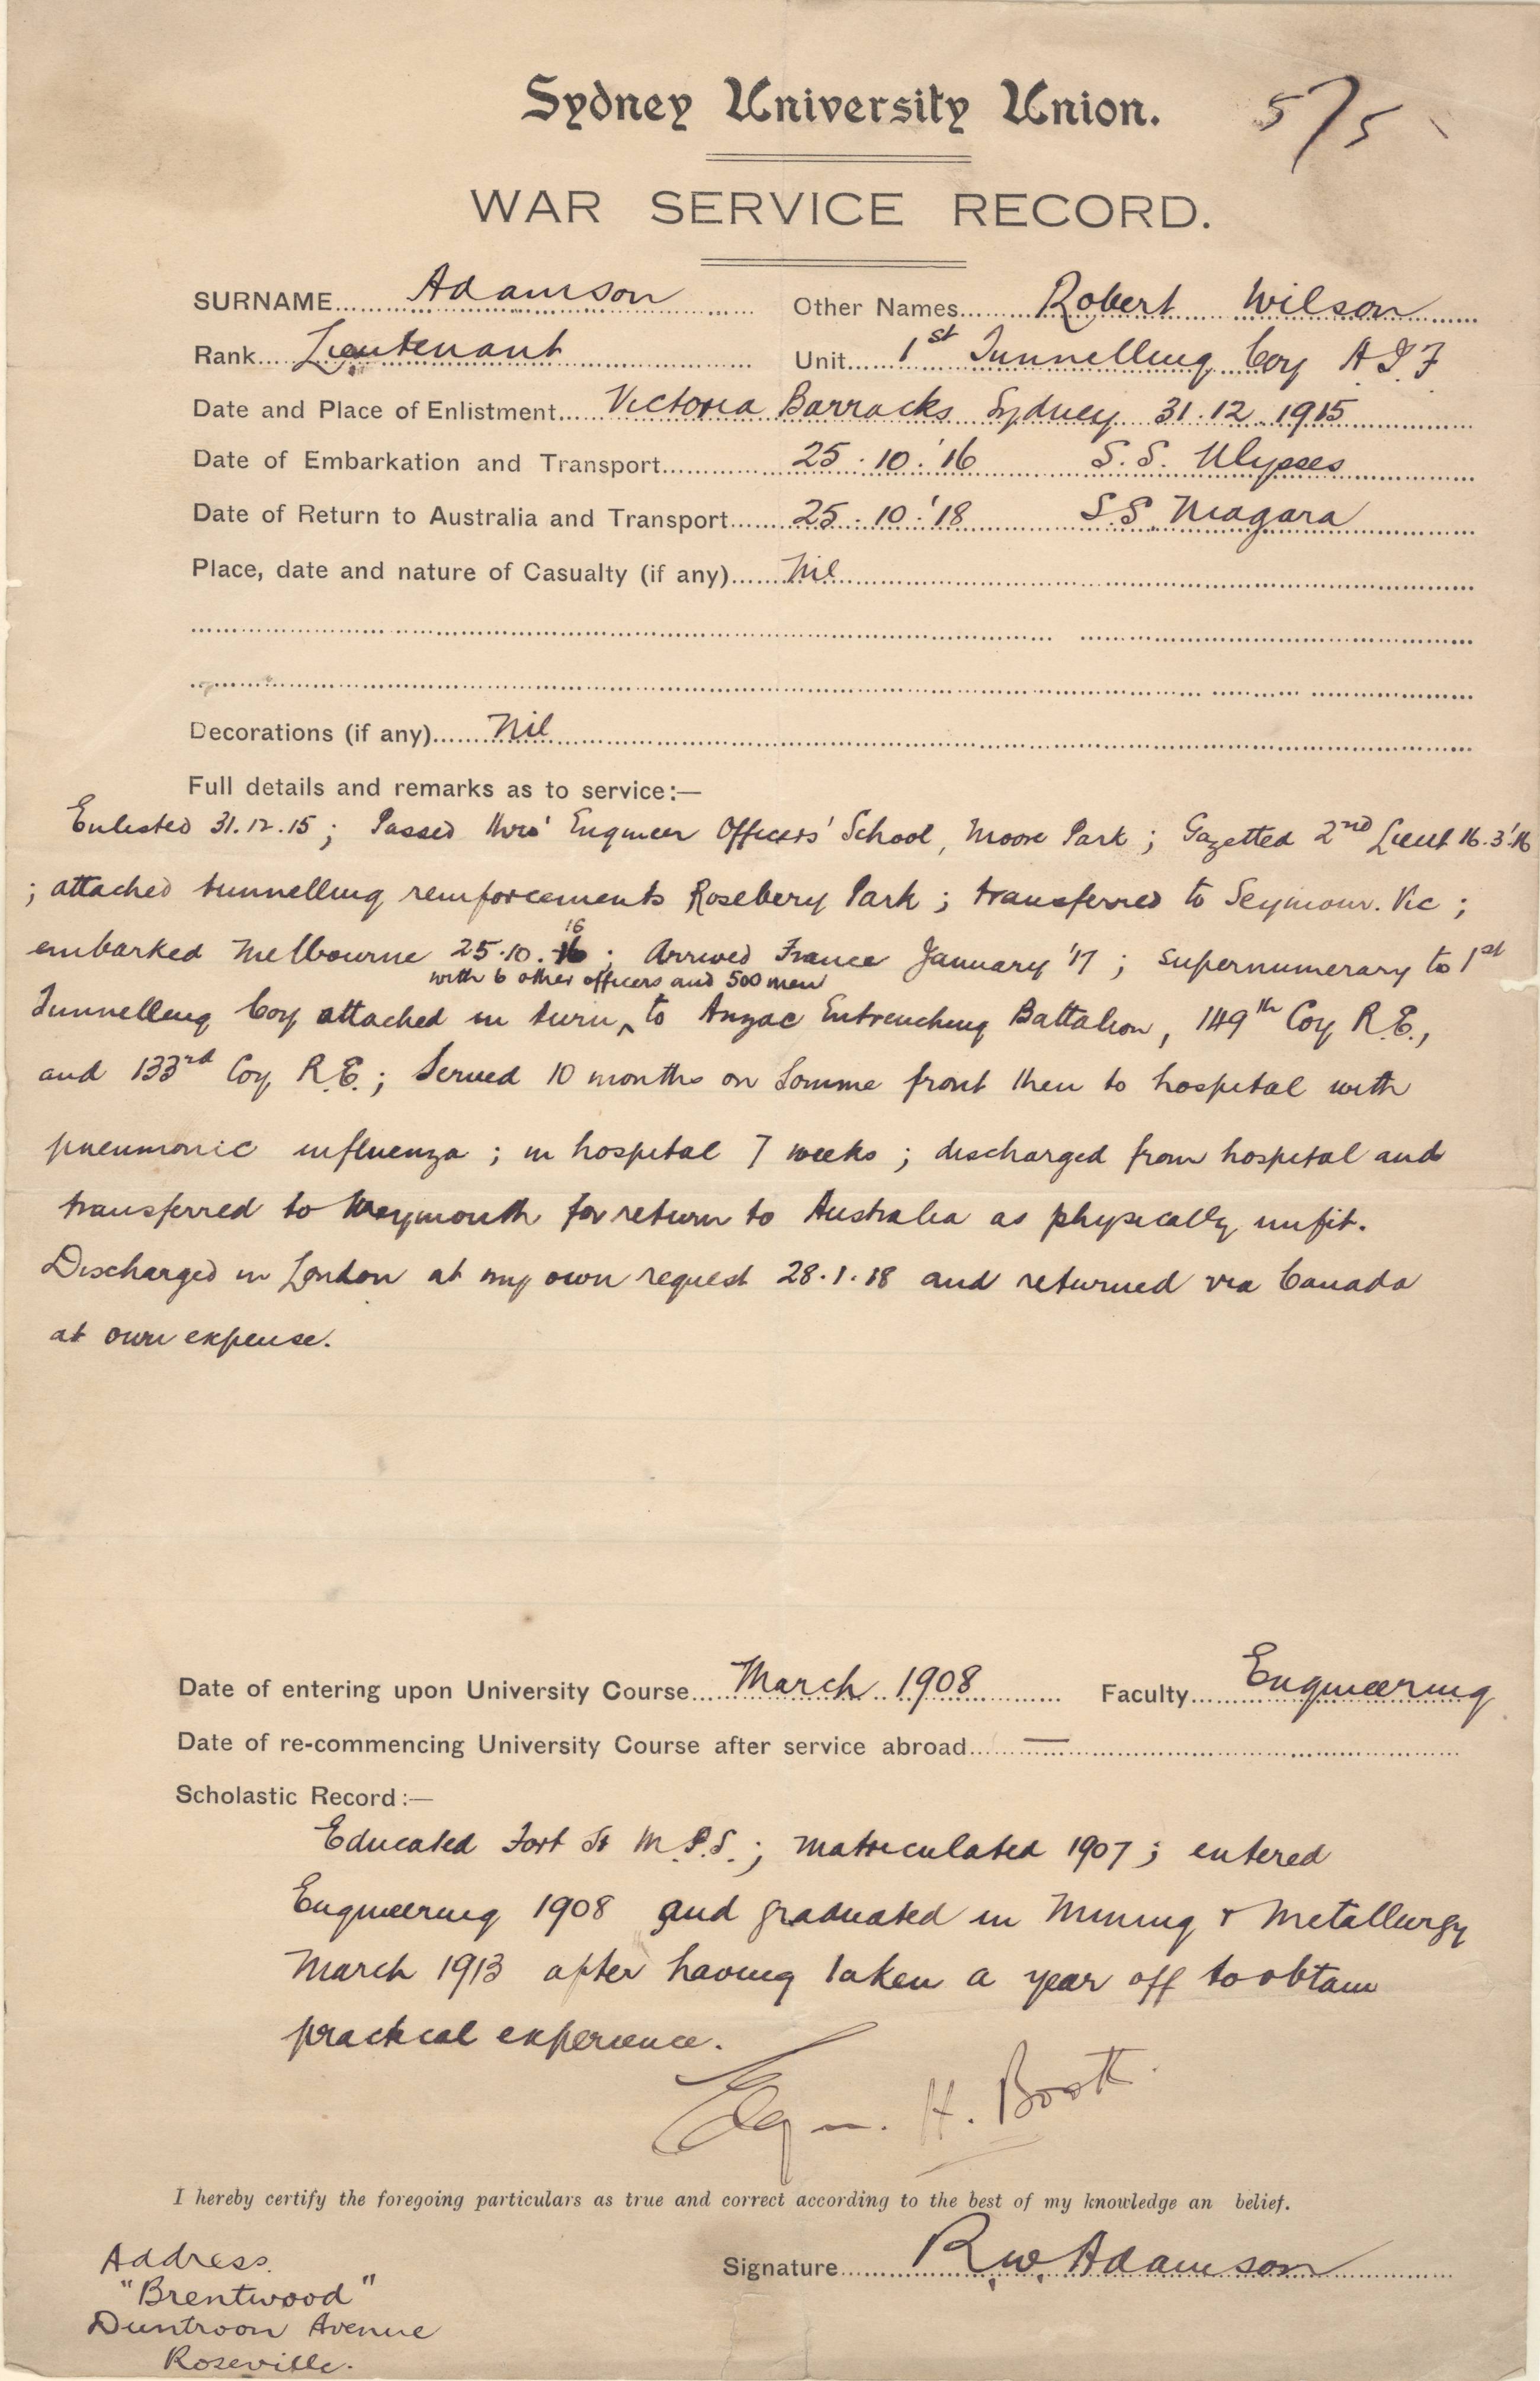 Sydney University Union.
5/5
WAR SERVICE RECORD.
SURNAME Adamson Other Names Robert Wilson
Rank Lieutenant Unit 1st Tunnelling Coy A I F
Date and Place of Enlistment Victoria Barracks Sydney 31.12.1915
Date of Embarkation and Transport 25.10.'16 S.S. Ulysses
Date of Return to Australia and Transport 25.10.'18 S.S. Niagara
Place, date and nature of Casualty (if any) Nil
Decorations (if any) Nil
Full details and remarks as to service:—
Enlisted 31.12.15; Passed thro' Engineer Officers' School, Moore Park; Gazetted 2nd Lieut 16.3.'16
; attached tunnelling reinforcements Rosebery Park; transferred to Seymour. Vic;
embarked Melbourne 25.10.16; Arrived France January '17; supernumerary to 1st
with 6 other officers and 500 men
Tunnelling Coy attached in turn, to Anzac Entrenching Battalion, 149th Coy R.E.,
and 133rd Coy R.E.; Served 10 months on Somme front then to hospital with
pneumonic influenza; in hospital 7 weeks; discharged from hospital and
transferred to Weymouth for return to Australia as physically unfit.
Discharged in London at my own request 28.1.18 and returned via Canada
at own expense.
Date of entering upon University Course March 1908 Faculty Engineering
Date of re-commencing University Course after service abroad —
Scholastic Record:—
Educated Fort St M.P.S.; matriculated 1907; entered
Engineering 1908 and graduated in Mining & Metallurgy
March 1913 after having taken a year off to obtain
practical experience.
H. Booth
I hereby certify the foregoing particulars as true and correct according to the best of my knowledge an belief.
Signature R.W. Adamson
Address.
"Brentwood"
Duntroon Avenue
Roseville.